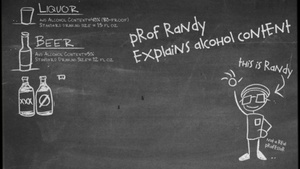 LIQUOR
AVG ALCOHOL CONTENT=40% (80-PROOF)
STANDARD DRINKING SIZE = 1.5 FL. OZ.
BEER
AVG ALCOHOL CONTENT=5%
STANDARD DRINKING SIZE = 12 FL. OZ.
XXX
PROF RANDY
EXPLAINS ALCOHOL CONTENT
THIS IS RANDY
NOT A REAL
PROFESSOR